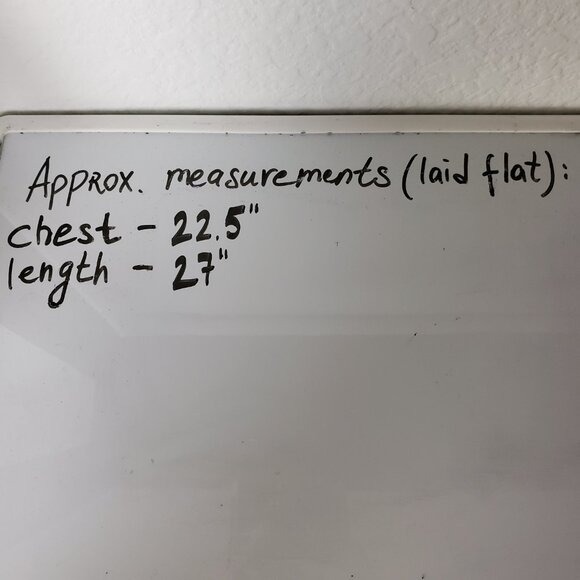 Approx. measurements (laid flat):
chest - 22.5"
length - 27"